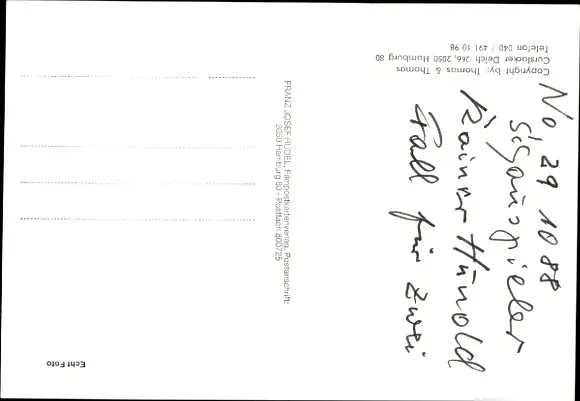 No, 29 10 88
Schauspieler
Rainer Hunold
Fall für Zwei
Copyright by: Thomas & Thomas
Curslacker Deich 266, 2050 Hamburg 80
Telefon 040 / 491 10 98
FRANZ JOSEF RÜDEL, Filmpostkartenverlag, Postanschrift:
2050 Hamburg 80 - Postfach 800725
Echt Foto